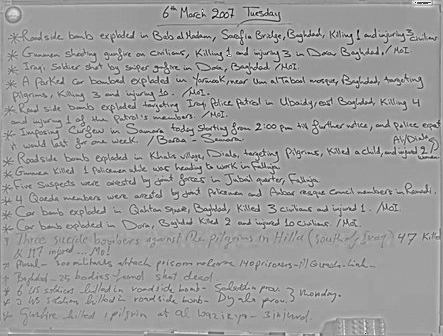 6th March 2007 Tuesday
* Roadside bomb exploded in Bab al Madam, Sarafia Bridge, Baghdad, Killing 1 and injuring 3 civilians
* Gunmen sheeting gunfire on civilians, Killing 1 and injuring 3 in Dora, Baghdad. / MoI.
* Iraqi Soldier shot by sniper gunfire in Dora, Baghdad. / MoI.
* A Parked car bombed exploded in Yarmouk, near Um al Tabol mosque, Baghdad, targeting
pilgrims, Killing 3 and injuring 10. / MoI.
* Road side bomb exploded targeting Iraqi Police Patrol in Ubaidy, east Baghdad, Killing 4
and injuring 1 of the Patrol's members. / MoI.
* Imposing Curfew in Samara today starting from 2:00 pm till further notice, and police expect
it would last for one week. / - Samara.
* Roadside bomb exploded in Khalis village, Diala, targeting Pilgrims, Killed a child, and injured 2 women
* Gunmen Killed 1 policeman while was heading to work in Falluja.
* Five Suspects were arrested by joint forces in Jubail quarter, Falluja.
* 4 Qaeda members were arrested by joint Policemen and Anbar rescue council members in Ramadi.
* Car bomb exploded in Qahtan Square, Baghdad Killed 3 civilians and injured 1. / MoI.
* Car bomb exploded in Dora, Baghdad Killed 2 and injured 10 civilians. / MoI.
* Three suicide bombers against the pilgrims in Hilla (south of Iraq) 47 Killed
& 117 injured .... MoI
* attack prison 140 prisoners
* Baghdad - 25 bodies found shot dead.
* 6 US soldiers killed in roadside bomb - Salahdin prov. } Monday.
* 3 US soldiers killed in roadside bomb - Dyala prov.
* Gunfire killed 1 pilgrim at al - 3 injured.